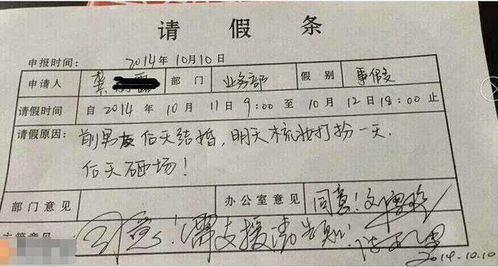 请假条
申报时间: 2014年10月10日
申请人 龚 露 部门 业务部 假别 事假
请假时间 自2014年10月11日9:00至10月12日18:00止
请假原因: 前男友后天结婚，明天梳妆打扮一天.
后天砸场!
部门意见 办公室意见 同意!
主管意见 同意!需支援请告知!
2014.10.10